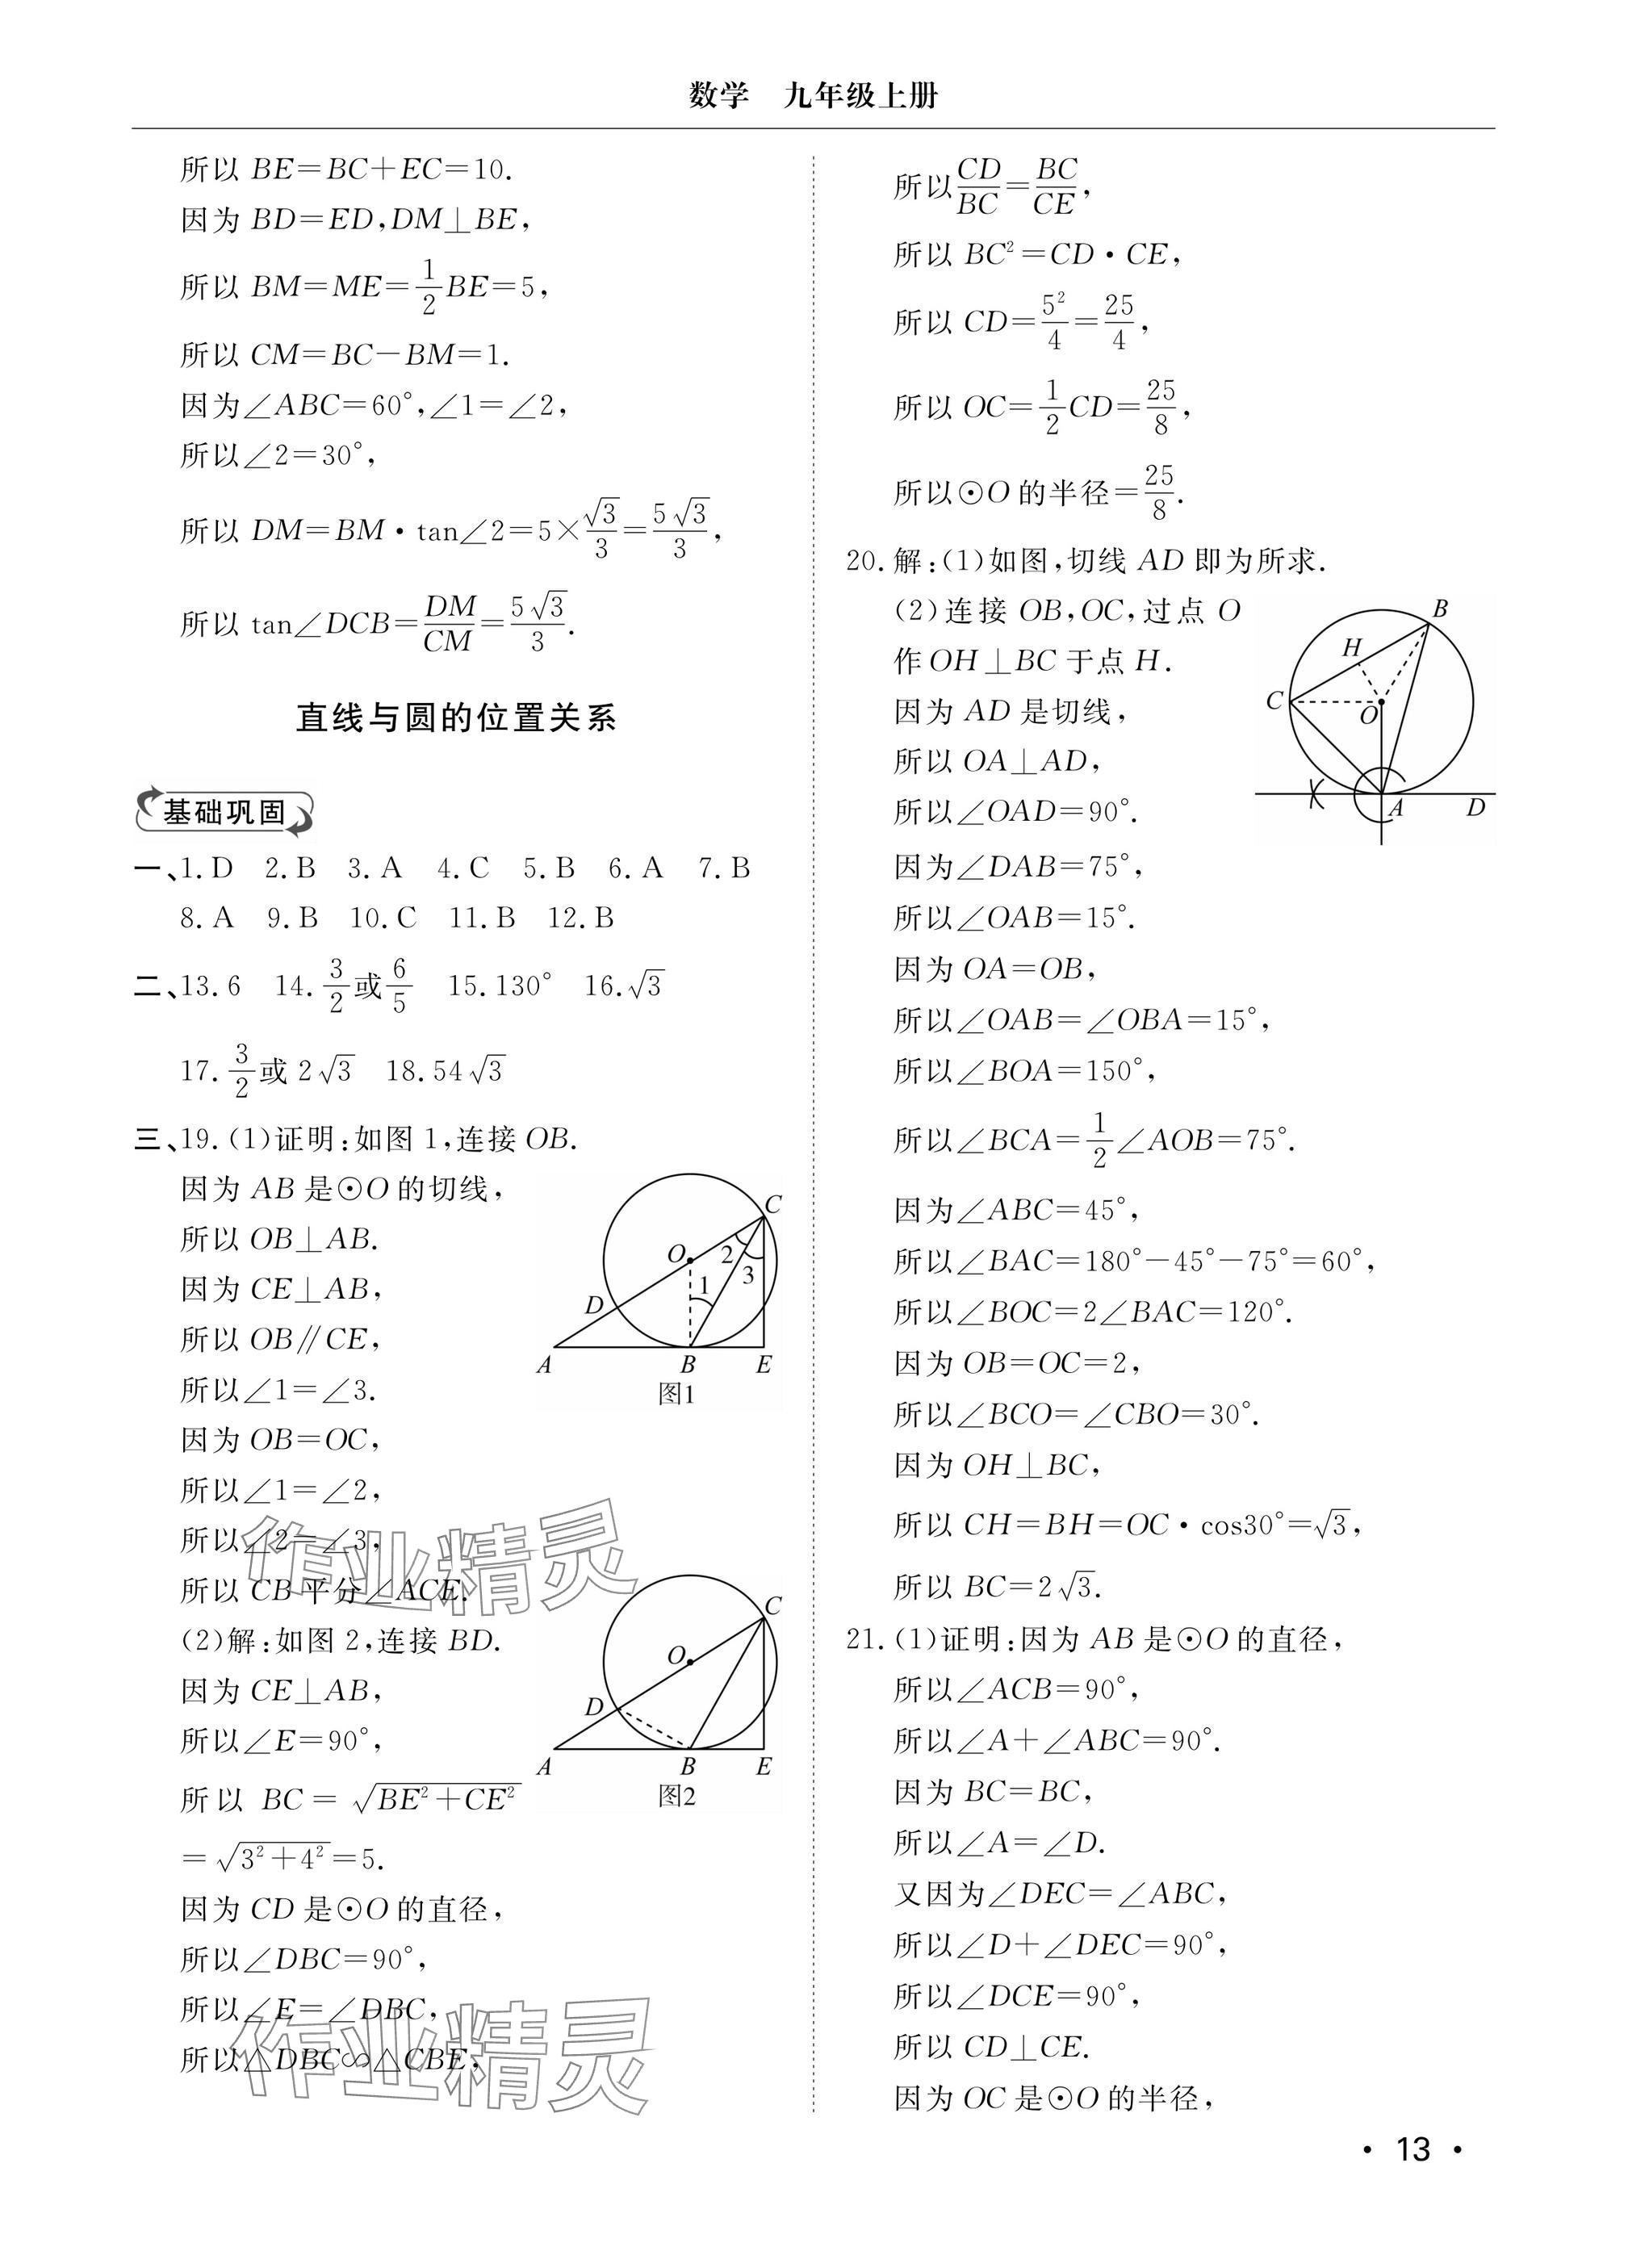 数学 九年级上册
所以 BE=BC+EC=10.
因为 BD=ED,DM⊥BE,
所以 BM=ME=1/2 BE=5,
所以 CM=BC-BM=1.
因为∠ABC=60°,∠1=∠2,
所以∠2=30°,
所以 DM=BM·tan∠2=5×√3/3=5√3/3,
所以 tan∠DCB=DM/CM=5√3/3.
直线与圆的位置关系
基础巩固
一、1.D 2.B 3.A 4.C 5.B 6.A 7.B
8.A 9.B 10.C 11.B 12.B
二、13.6 14.3/2或6/5 15.130° 16.√3
17.3/2或 2√3 18.54√3
三、19.(1)证明:如图 1,连接 OB.
因为 AB 是⊙O 的切线,
所以 OB⊥AB.
因为 CE⊥AB,
所以 OB∥CE,
所以∠1=∠3.
因为 OB=OC,
所以∠1=∠2,
所以∠2=∠3,
所以 CB 平分∠ACE.
C
O
2
3
1
D
A
B
E
图1
(2)解:如图 2,连接 BD.
因为 CE⊥AB,
所以∠E=90°,
所以 BC=√(BE²+CE²)
=√(3²+4²)=5.
因为 CD 是⊙O 的直径,
所以∠DBC=90°,
所以∠E=∠DBC,
所以△DBC∽△CBE,
C
O
D
A
B
E
图2
作业精灵
作业精灵
所以CD/BC=BC/CE,
所以 BC²=CD·CE,
所以 CD=5²/4=25/4,
所以 OC=1/2 CD=25/8,
所以⊙O 的半径=25/8.
20.解:(1)如图,切线 AD 即为所求.
(2)连接 OB,OC,过点 O
作 OH⊥BC 于点 H.
因为 AD 是切线,
所以 OA⊥AD,
所以∠OAD=90°.
因为∠DAB=75°,
所以∠OAB=15°.
因为 OA=OB,
所以∠OAB=∠OBA=15°,
所以∠BOA=150°,
所以∠BCA=1/2∠AOB=75°.
因为∠ABC=45°,
所以∠BAC=180°-45°-75°=60°,
所以∠BOC=2∠BAC=120°.
因为 OB=OC=2,
所以∠BCO=∠CBO=30°.
因为 OH⊥BC,
所以 CH=BH=OC·cos30°=√3,
所以 BC=2√3.
B
H
C
O
A
D
21.(1)证明:因为 AB 是⊙O 的直径,
所以∠ACB=90°,
所以∠A+∠ABC=90°.
因为 BC=BC,
所以∠A=∠D.
又因为∠DEC=∠ABC,
所以∠D+∠DEC=90°,
所以∠DCE=90°,
所以 CD⊥CE.
因为 OC 是⊙O 的半径,
·13·